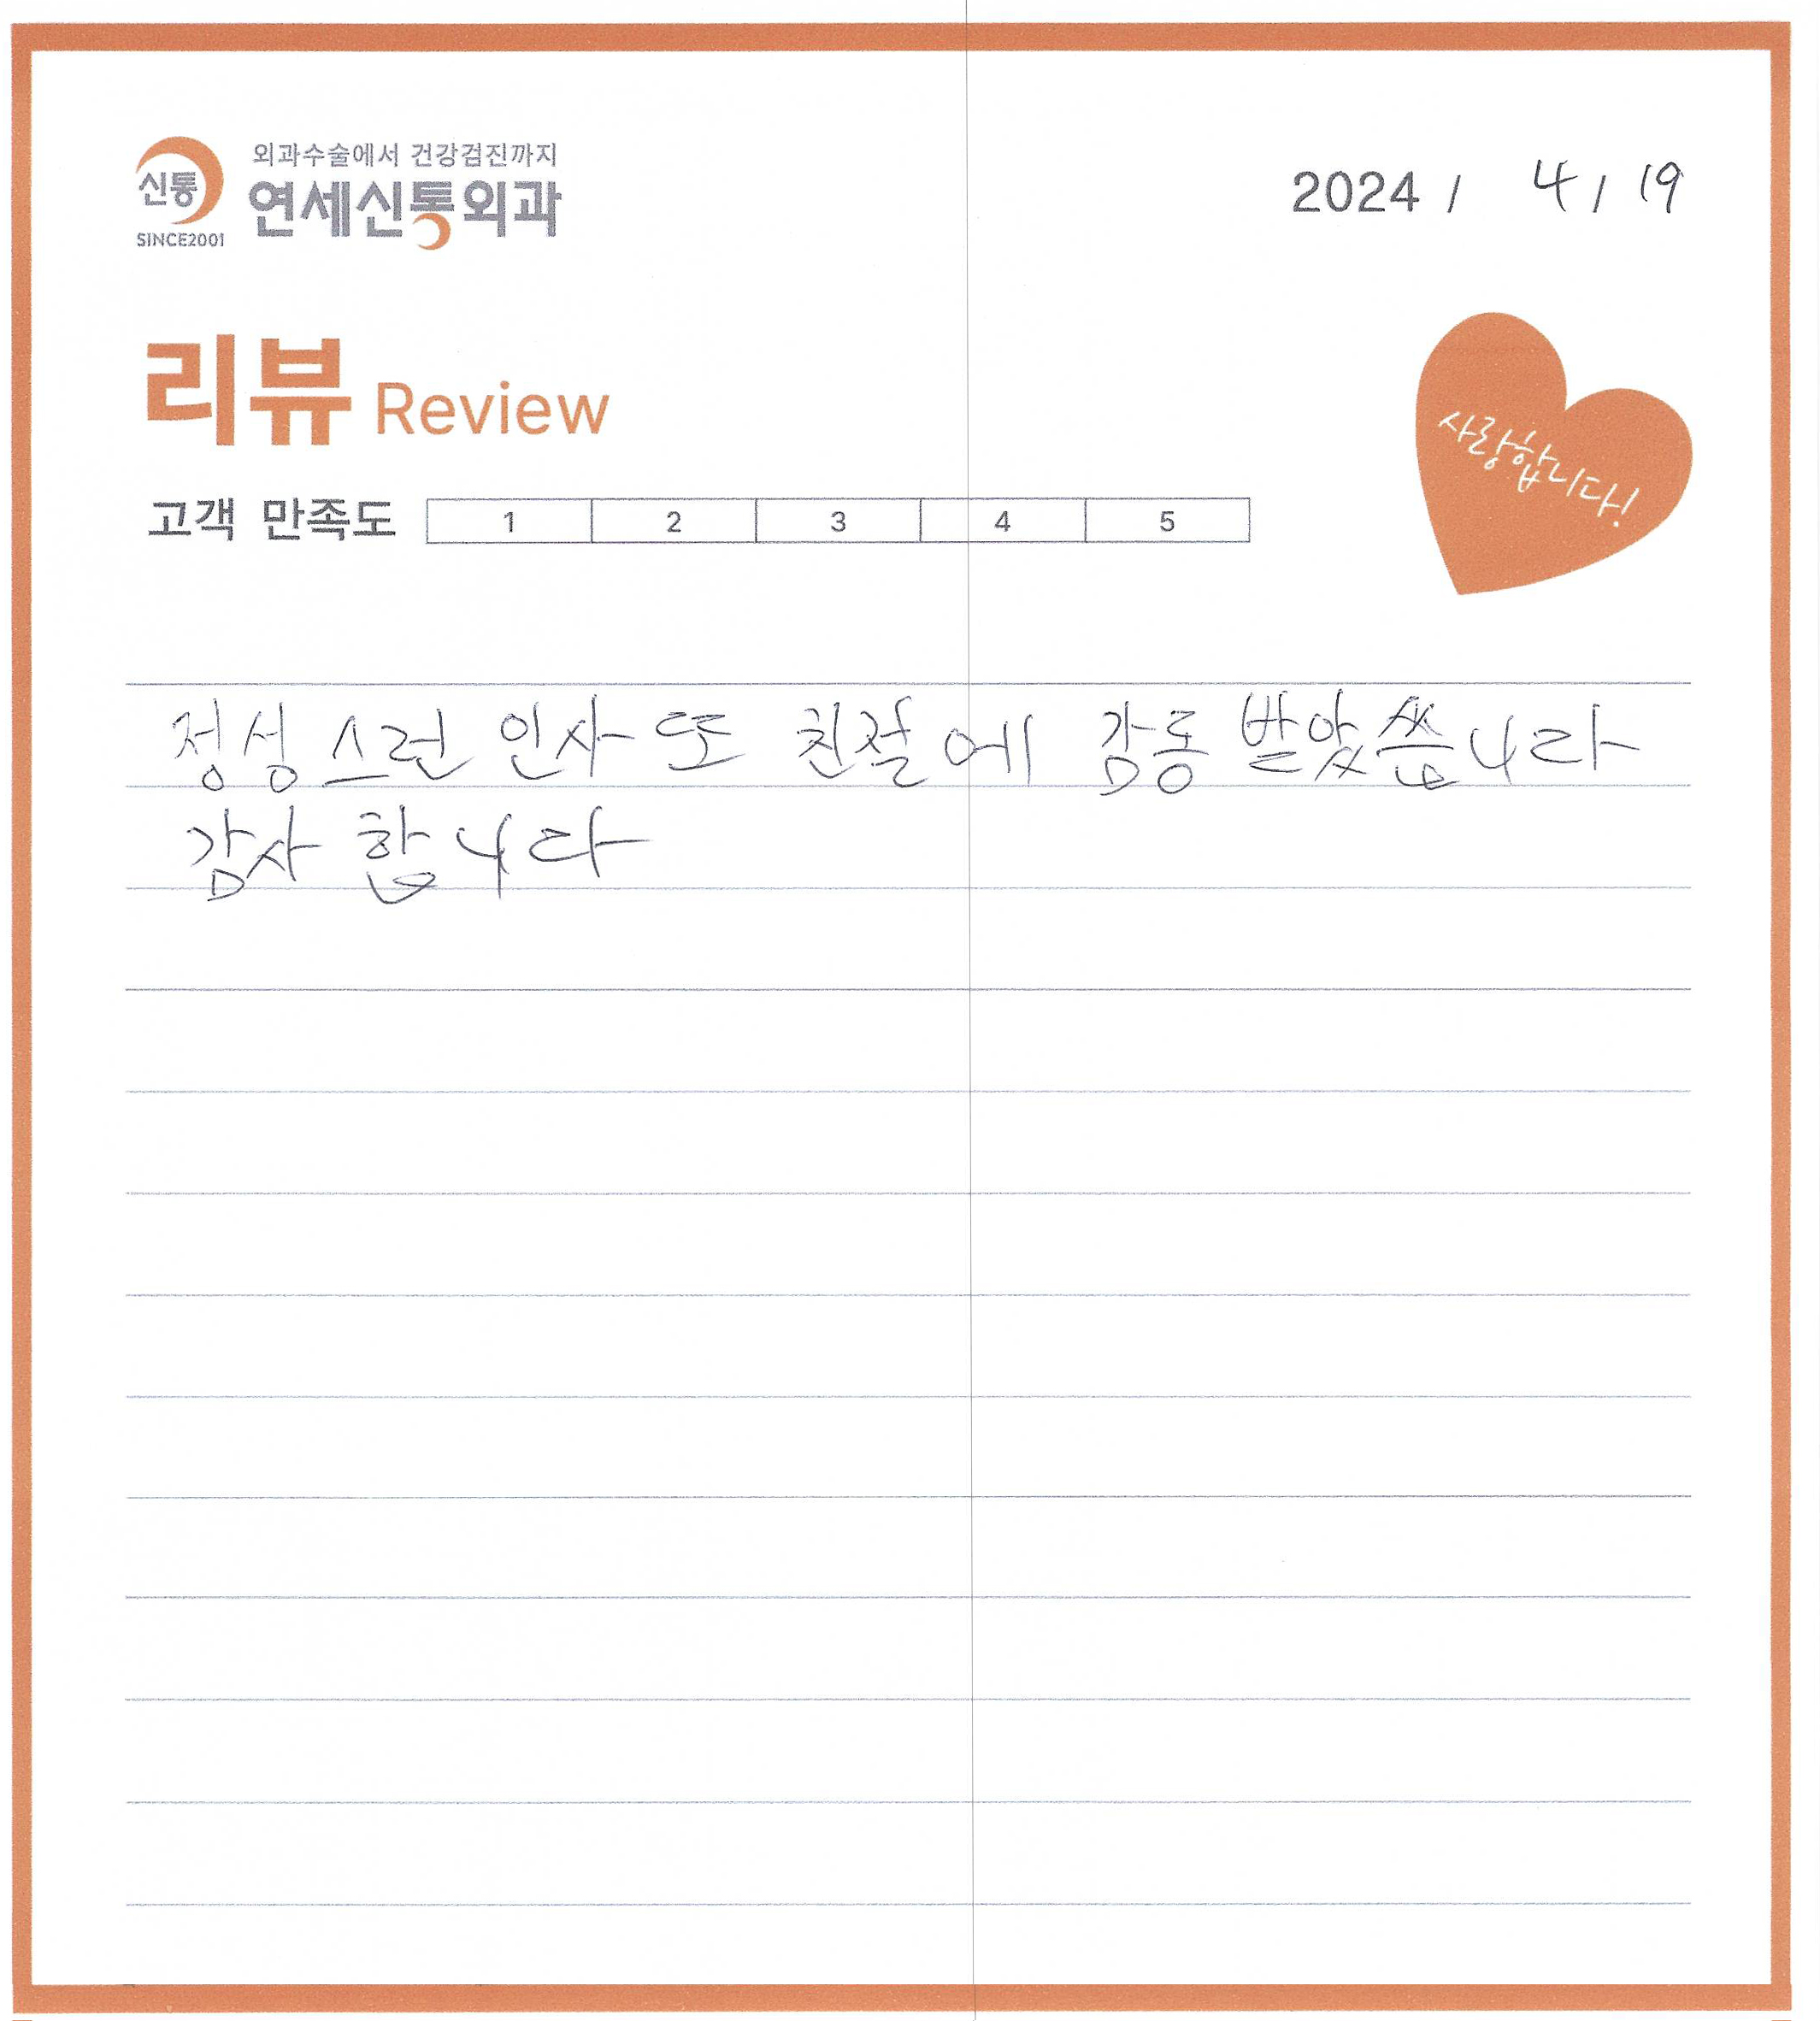 신통
SINCE2001
외과수술에서 건강검진까지
연세신통외과
2024 / 4 / 19
리뷰 Review
사랑합니다!
고객 만족도 1 2 3 4 5
정성스런 인사 또 친절에 감동 받았씁니다
감사 합니다